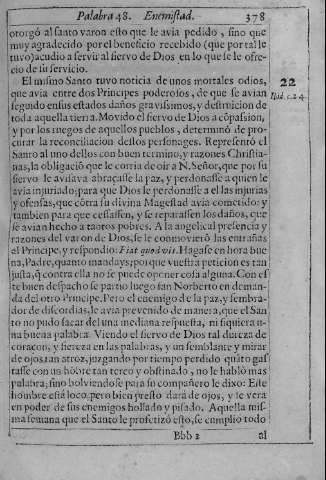 Palabra 48. Enemistad. 378
otorgó al santo varon esto que le avia pedido, sino que
muy agradecido por el beneficio recebido (que por tal le
tuvo) acudio a servir al siervo de Dios en lo que se le ofre-
cio de su servicio.
El mismo Santo tuvo noticia de unos mortales odios,
22
que avia entre dos Principes poderosos, de que se avian
Ibid. c. 24.
seguido en sus estados daños gravissimos, y destruicion de
toda aquella tierra. Movido el siervo de Dios a cõpassion,
y por los ruegos de aquellos pueblos, determinó de pro-
curar la reconciliacion destos personages. Representó el
Santo al uno dellos con buen termino, y razones Christia-
nas, la obligaciõ que le corria de oir a N. Señor, que por su
siervo le avisava abraçasse la paz, y perdonasse a quien le
avia injuriado; para que Dios le perdonasse a el las injurias
y ofensas, que cõtra su divina Magestad avia cometido: y
tambien para que cessassen, y se reparassen los daños, que
se avian hecho a tantos pobres. A la angelical presencia y
razones del varon de Dios, se le conmovierõ las entrañas
al Principe, y respondio: Fiat quod vis. Hagase en hora bue
na, Padre, quanto mandays; porque vuestra peticion es tan
justa, q̃ contra ella no se puede oponer cosa alguna. Con es
te buen despacho se partio luego san Norberto en deman-
da del otro Principe. Pero el enemigo de la paz, y sembra-
dor de discordias, le avia prevenido de manera, que el San
to no pudo sacar del una mediana respuesta, ni siquiera u-
na buena palabra. Viendo el siervo de Dios tal dureza de
coraçon, y fiereza en las palabras, y un semblante y mirar
de ojos tan atroz, juzgando por tiempo perdido quãto gas
tasse con un hõbre tan terco y obstinado, no le habló mas
palabra, sino bolviendose para su compañero le dixo: Este
hombre está loco, pero bien presto dará de ojos, y se vera
en poder de sus enemigos hollado y pisado. Aquella mis-
ma semana que el Santo le profetizó esto, se cumplio todo
Bbb 2 al